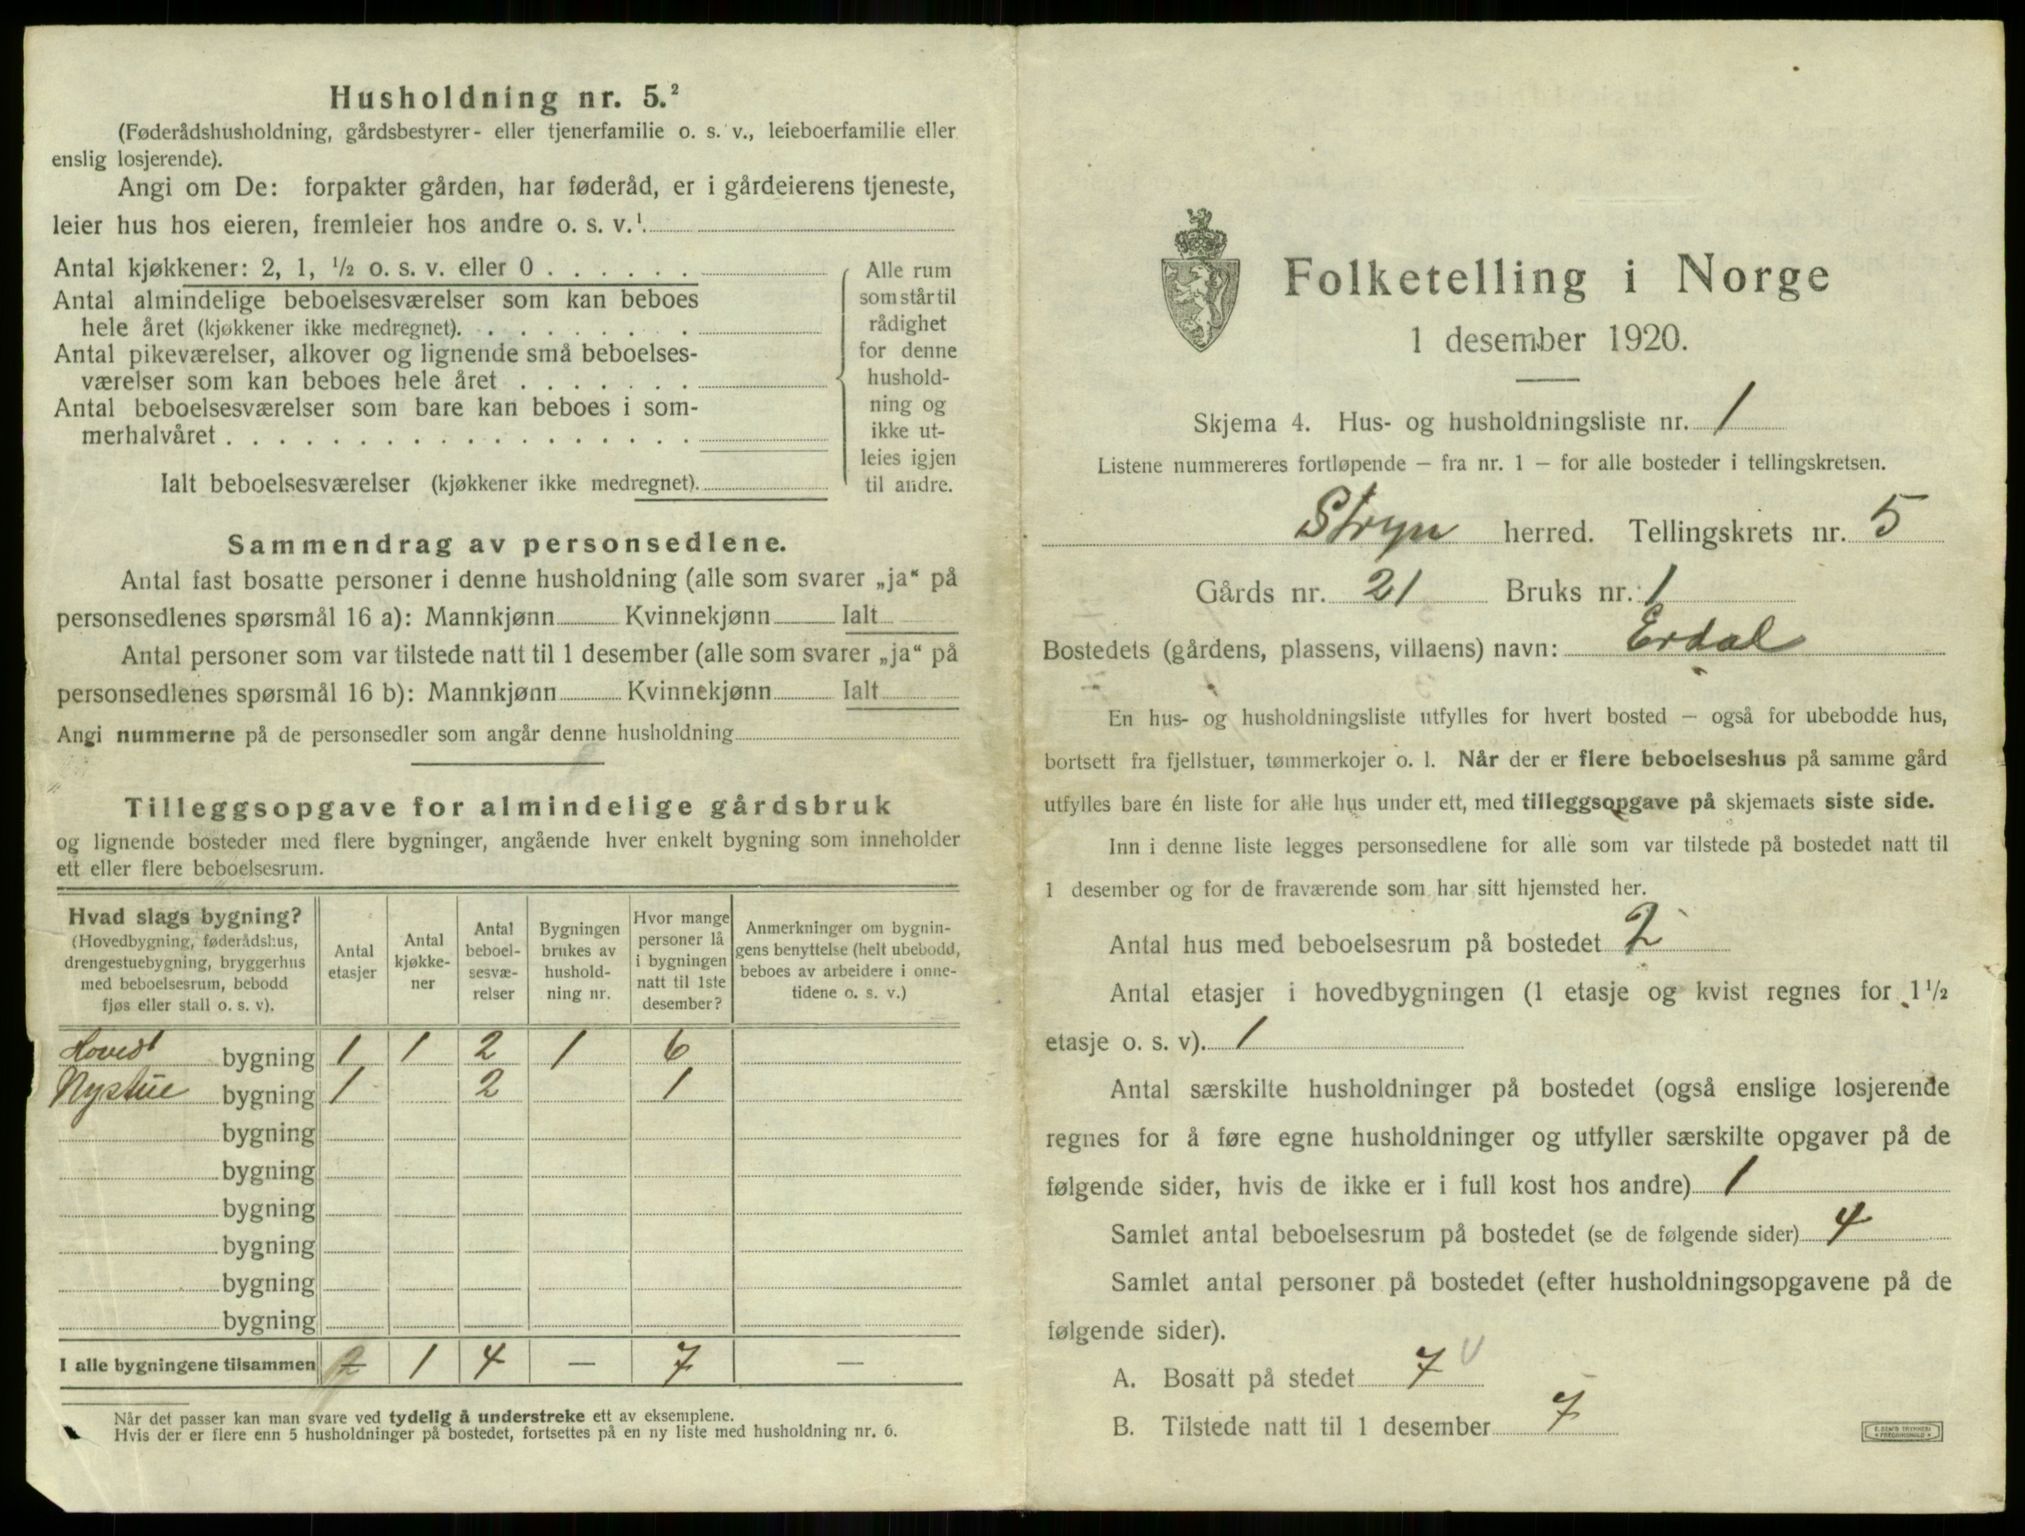 Husholdning nr. 5.²
(Føderådshusholdning, gårdsbestyrer- eller tjenerfamilie o. s. v., leieboerfamilie eller
enslig losjerende).
Angi om De: forpakter gården, har føderåd, er i gårdeierens tjeneste,
leier hus hos eieren, fremleier hos andre o. s. v.¹
Antal kjøkkener: 2, 1, ½ o. s. v. eller 0 . . . . . .
Antal almindelige beboelsesværelser som kan beboes
hele året (kjøkkener ikke medregnet). . . . . . . .
Antal pikeværelser, alkover og lignende små beboelses-
værelser som kan beboes hele året . . . . . . .
Antal beboelsesværelser som bare kan beboes i som-
merhalvåret . . . . . . . . . . . . . . . . . .
Ialt beboelsesværelser (kjøkkener ikke medregnet).
Alle rum
som står til
rådighet
for denne
hushold-
ning og
ikke ut-
leies igjen
til andre.
Sammendrag av personsedlene.
Antal fast bosatte personer i denne husholdning (alle som svarer „ja“ på
personsedlenes spørsmål 16 a): Mannkjønn Kvinnekjønn Ialt
Antal personer som var tilstede natt til 1 desember (alle som svarer „ja“ på
personsedlenes spørsmål 16 b): Mannkjønn Kvinnekjønn Ialt
Angi nummerne på de personsedler som angår denne husholdning
Tilleggsopgave for almindelige gårdsbruk
og lignende bosteder med flere bygninger, angående hver enkelt bygning som inneholder
ett eller flere beboelsesrum.
Hvad slags bygning?
(Hovedbygning, føderådshus,
drengestuebygning, bryggerhus
med beboelsesrum, bebodd
fjøs eller stall o. s. v).
Antal
etasjer
Antal
kjøkke-
ner
Antal
beboel-
sesvæ-
relser
Bygningen
brukes av
hushold-
ning nr.
Hvor mange
personer lå
i bygningen
natt til 1ste
desember?
Anmerkninger om bygnin-
gens benyttelse (helt ubebodd,
beboes av arbeidere i onne-
tidene o. s. v.)
Hoved bygning 1 1 2 1 6
Nystue bygning 1 2 1
bygning
bygning
bygning
bygning
bygning
bygning
I alle bygningene tilsammen 2 1 4 — 7 —
Når det passer kan man svare ved tydelig å understreke ett av eksemplene.
Hvis der er flere enn 5 husholdninger på bostedet, fortsettes på en ny liste med husholdning nr. 6.
Folketelling i Norge
1 desember 1920.
Skjema 4. Hus- og husholdningsliste nr. 1
Listene nummereres fortløpende — fra nr. 1 — for alle bosteder i tellingskretsen.
Stryn herred. Tellingskrets nr. 5
Gårds nr. 21 Bruks nr. 1
Bostedets (gårdens, plassens, villaens) navn: Erdal
En hus- og husholdningsliste utfylles for hvert bosted — også for ubebodde hus,
bortsett fra fjellstuer, tømmerkojer o. l. Når der er flere beboelseshus på samme gård
utfylles bare én liste for alle hus under ett, med tilleggsopgave på skjemaets siste side.
Inn i denne liste legges personsedlene for alle som var tilstede på bostedet natt til
1 desember og for de fraværende som har sitt hjemsted her.
Antal hus med beboelsesrum på bostedet 2
Antal etasjer i hovedbygningen (1 etasje og kvist regnes for 1½
etasje o. s. v). 1
Antal særskilte husholdninger på bostedet (også enslige losjerende
regnes for å føre egne husholdninger og utfyller særskilte opgaver på de
følgende sider, hvis de ikke er i full kost hos andre) 1
Samlet antal beboelsesrum på bostedet (se de følgende sider) 4
Samlet antal personer på bostedet (efter husholdningsopgavene på de
følgende sider).
A. Bosatt på stedet 7
B. Tilstede natt til 1 desember 7